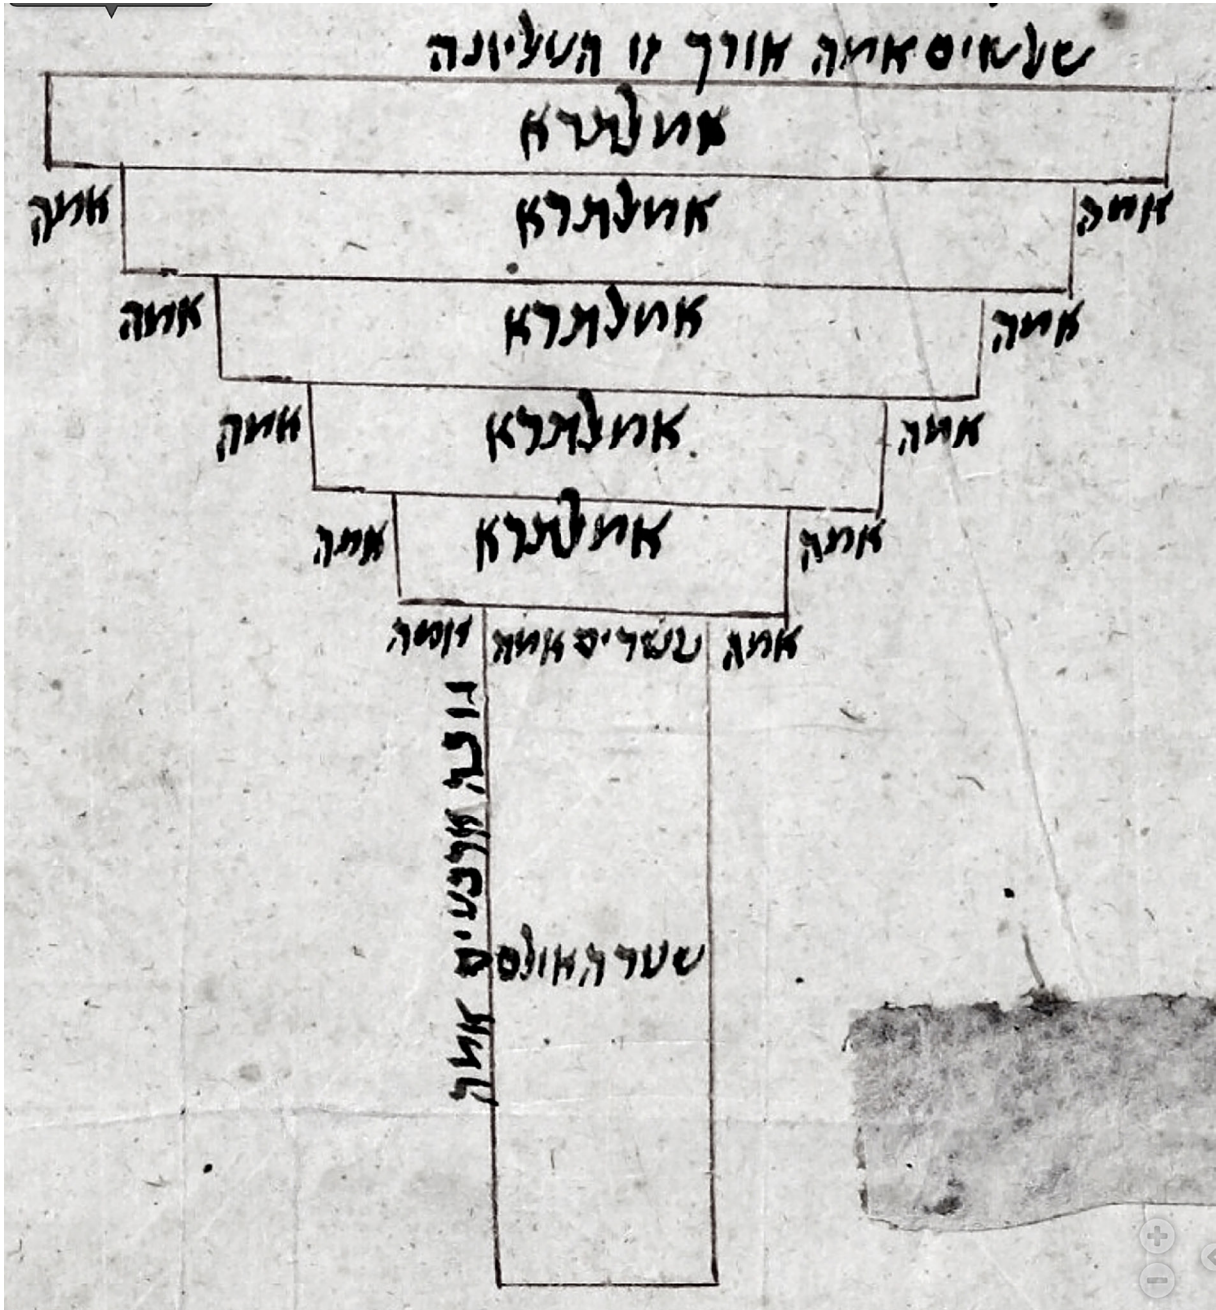 שלשים אמה אורך זו העליונה
אמלתרא
אמה אמלתרא אמה
אמה אמלתרא אמה
אמה אמלתרא אמה
אמה אמלתרא אמה
אמה עשרים אמה אמה
גובה ארבעים אמה
שער האולם